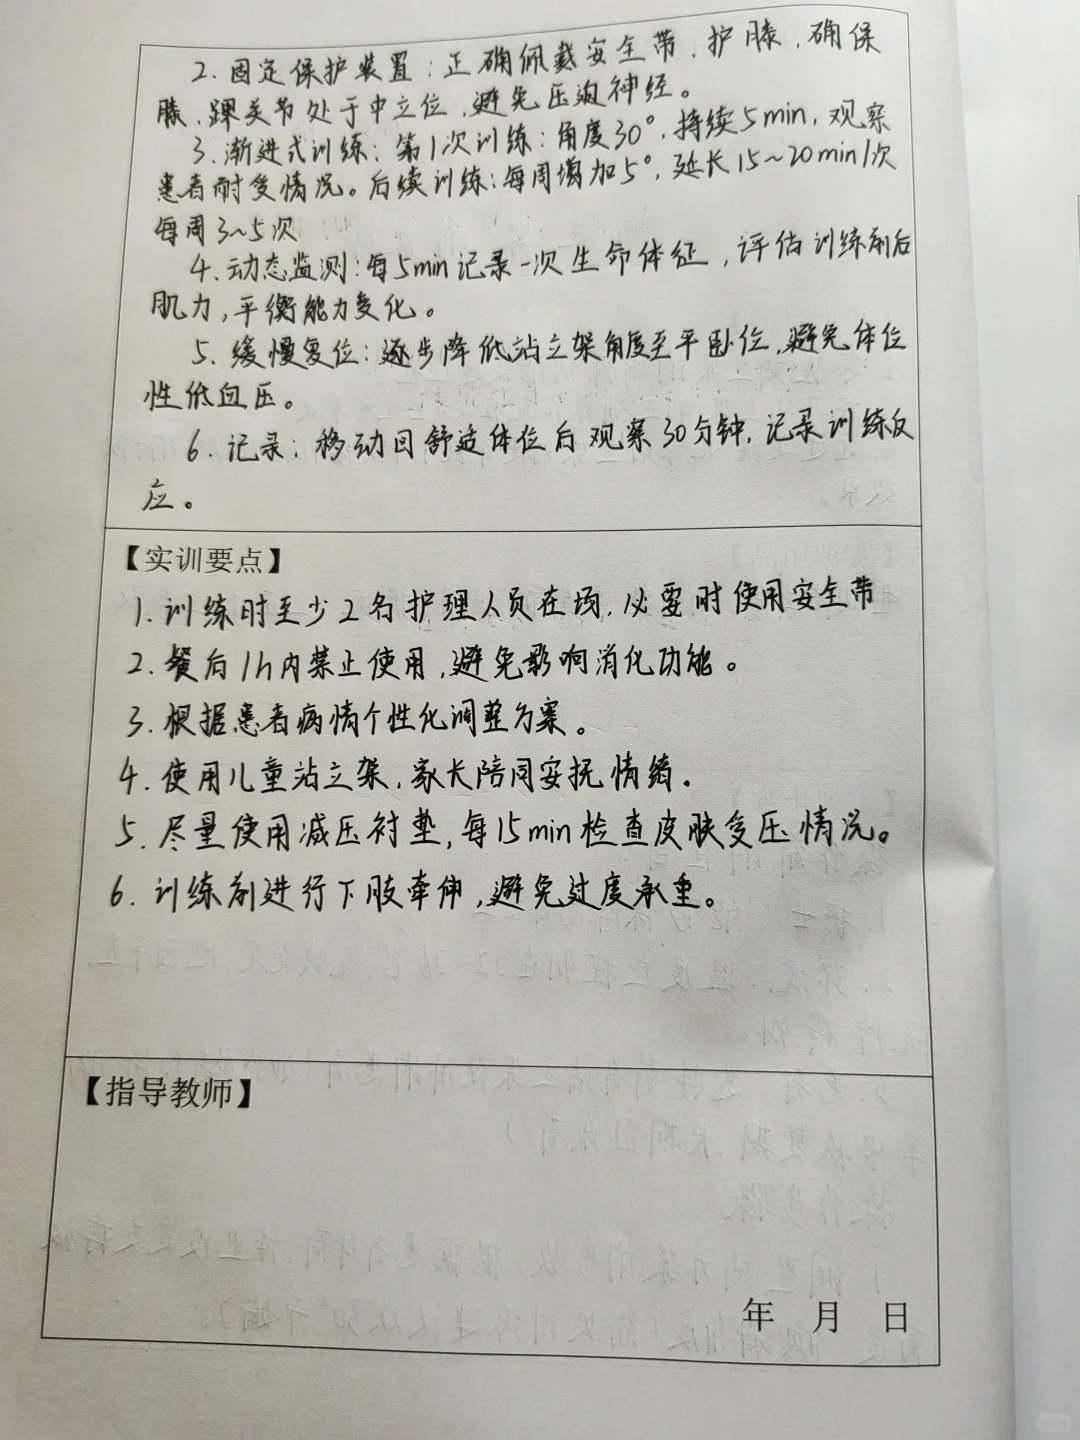 2. 固定保护装置：正确佩戴安全带、护膝，确保
膝、踝关节处于中立位，避免压迫神经。
3. 渐进式训练：第1次训练：角度30°，持续5min，观察
患者耐受情况。后续训练：每周增加5°，延长15~20min/次
每周3~5次
4. 动态监测：每5min记录一次生命体征，评估训练前后
肌力，平衡能力变化。
5. 缓慢复位：逐步降低站立架角度至平卧位，避免体位
性低血压。
6. 记录：移动回舒适体位后观察30分钟，记录训练反
应。
【实训要点】
1. 训练时至少2名护理人员在场，必要时使用安全带
2. 餐后1h内禁止使用，避免影响消化功能。
3. 根据患者病情个性化调整方案。
4. 使用儿童站立架，家长陪同安抚情绪。
5. 尽量使用减压衬垫，每15min检查皮肤受压情况。
6. 训练前进行下肢牵伸，避免过度承重。
【指导教师】
年 月 日